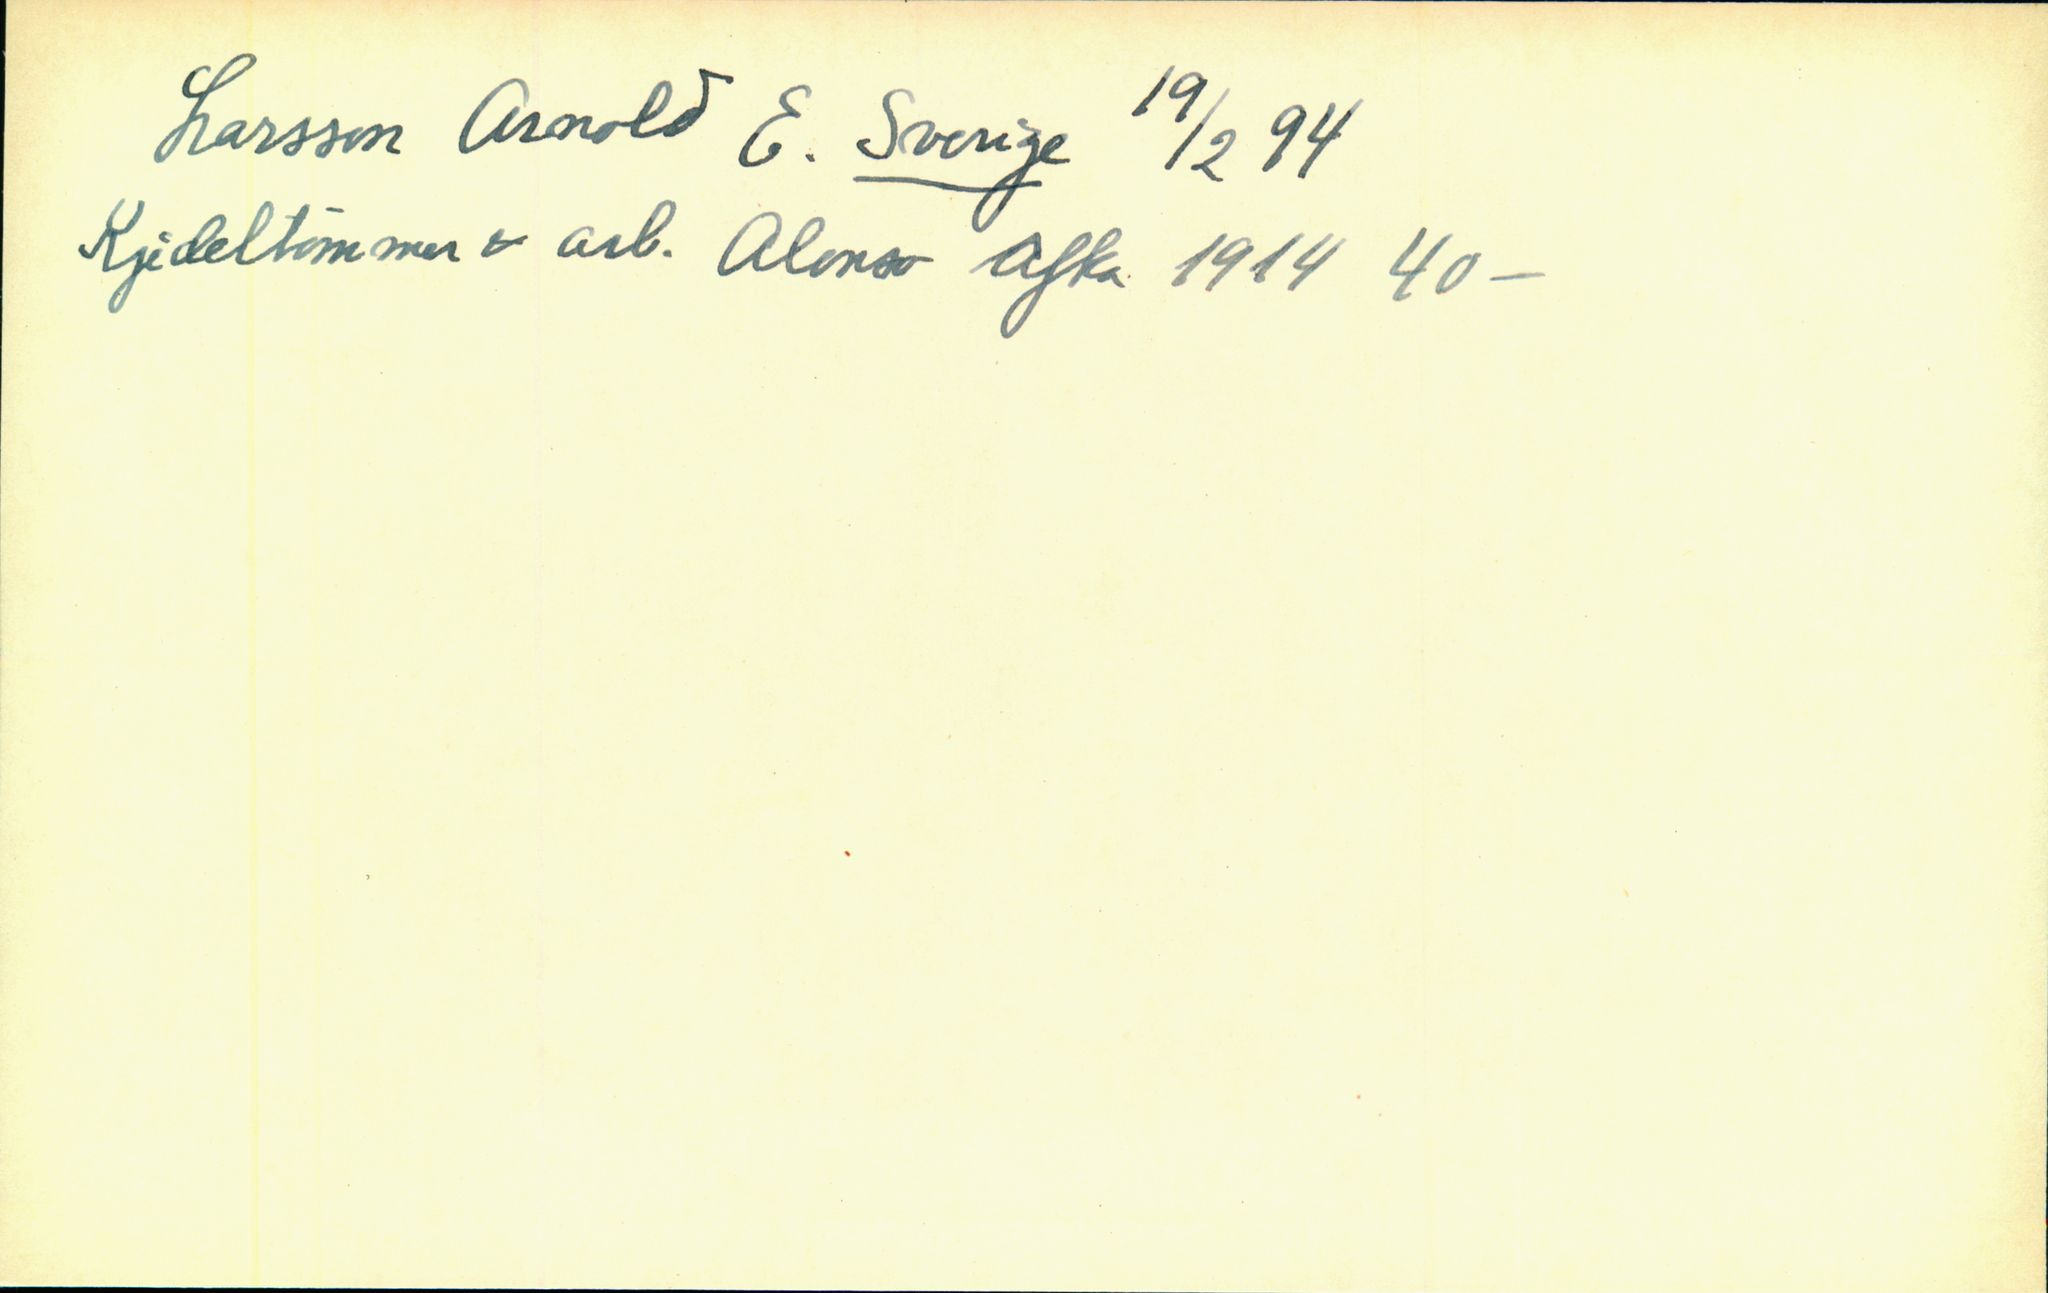 Larsson Arnold E. Sverige 19/2 94
Kjedeltömmer & arb. Alonso Afka 1914 40 —